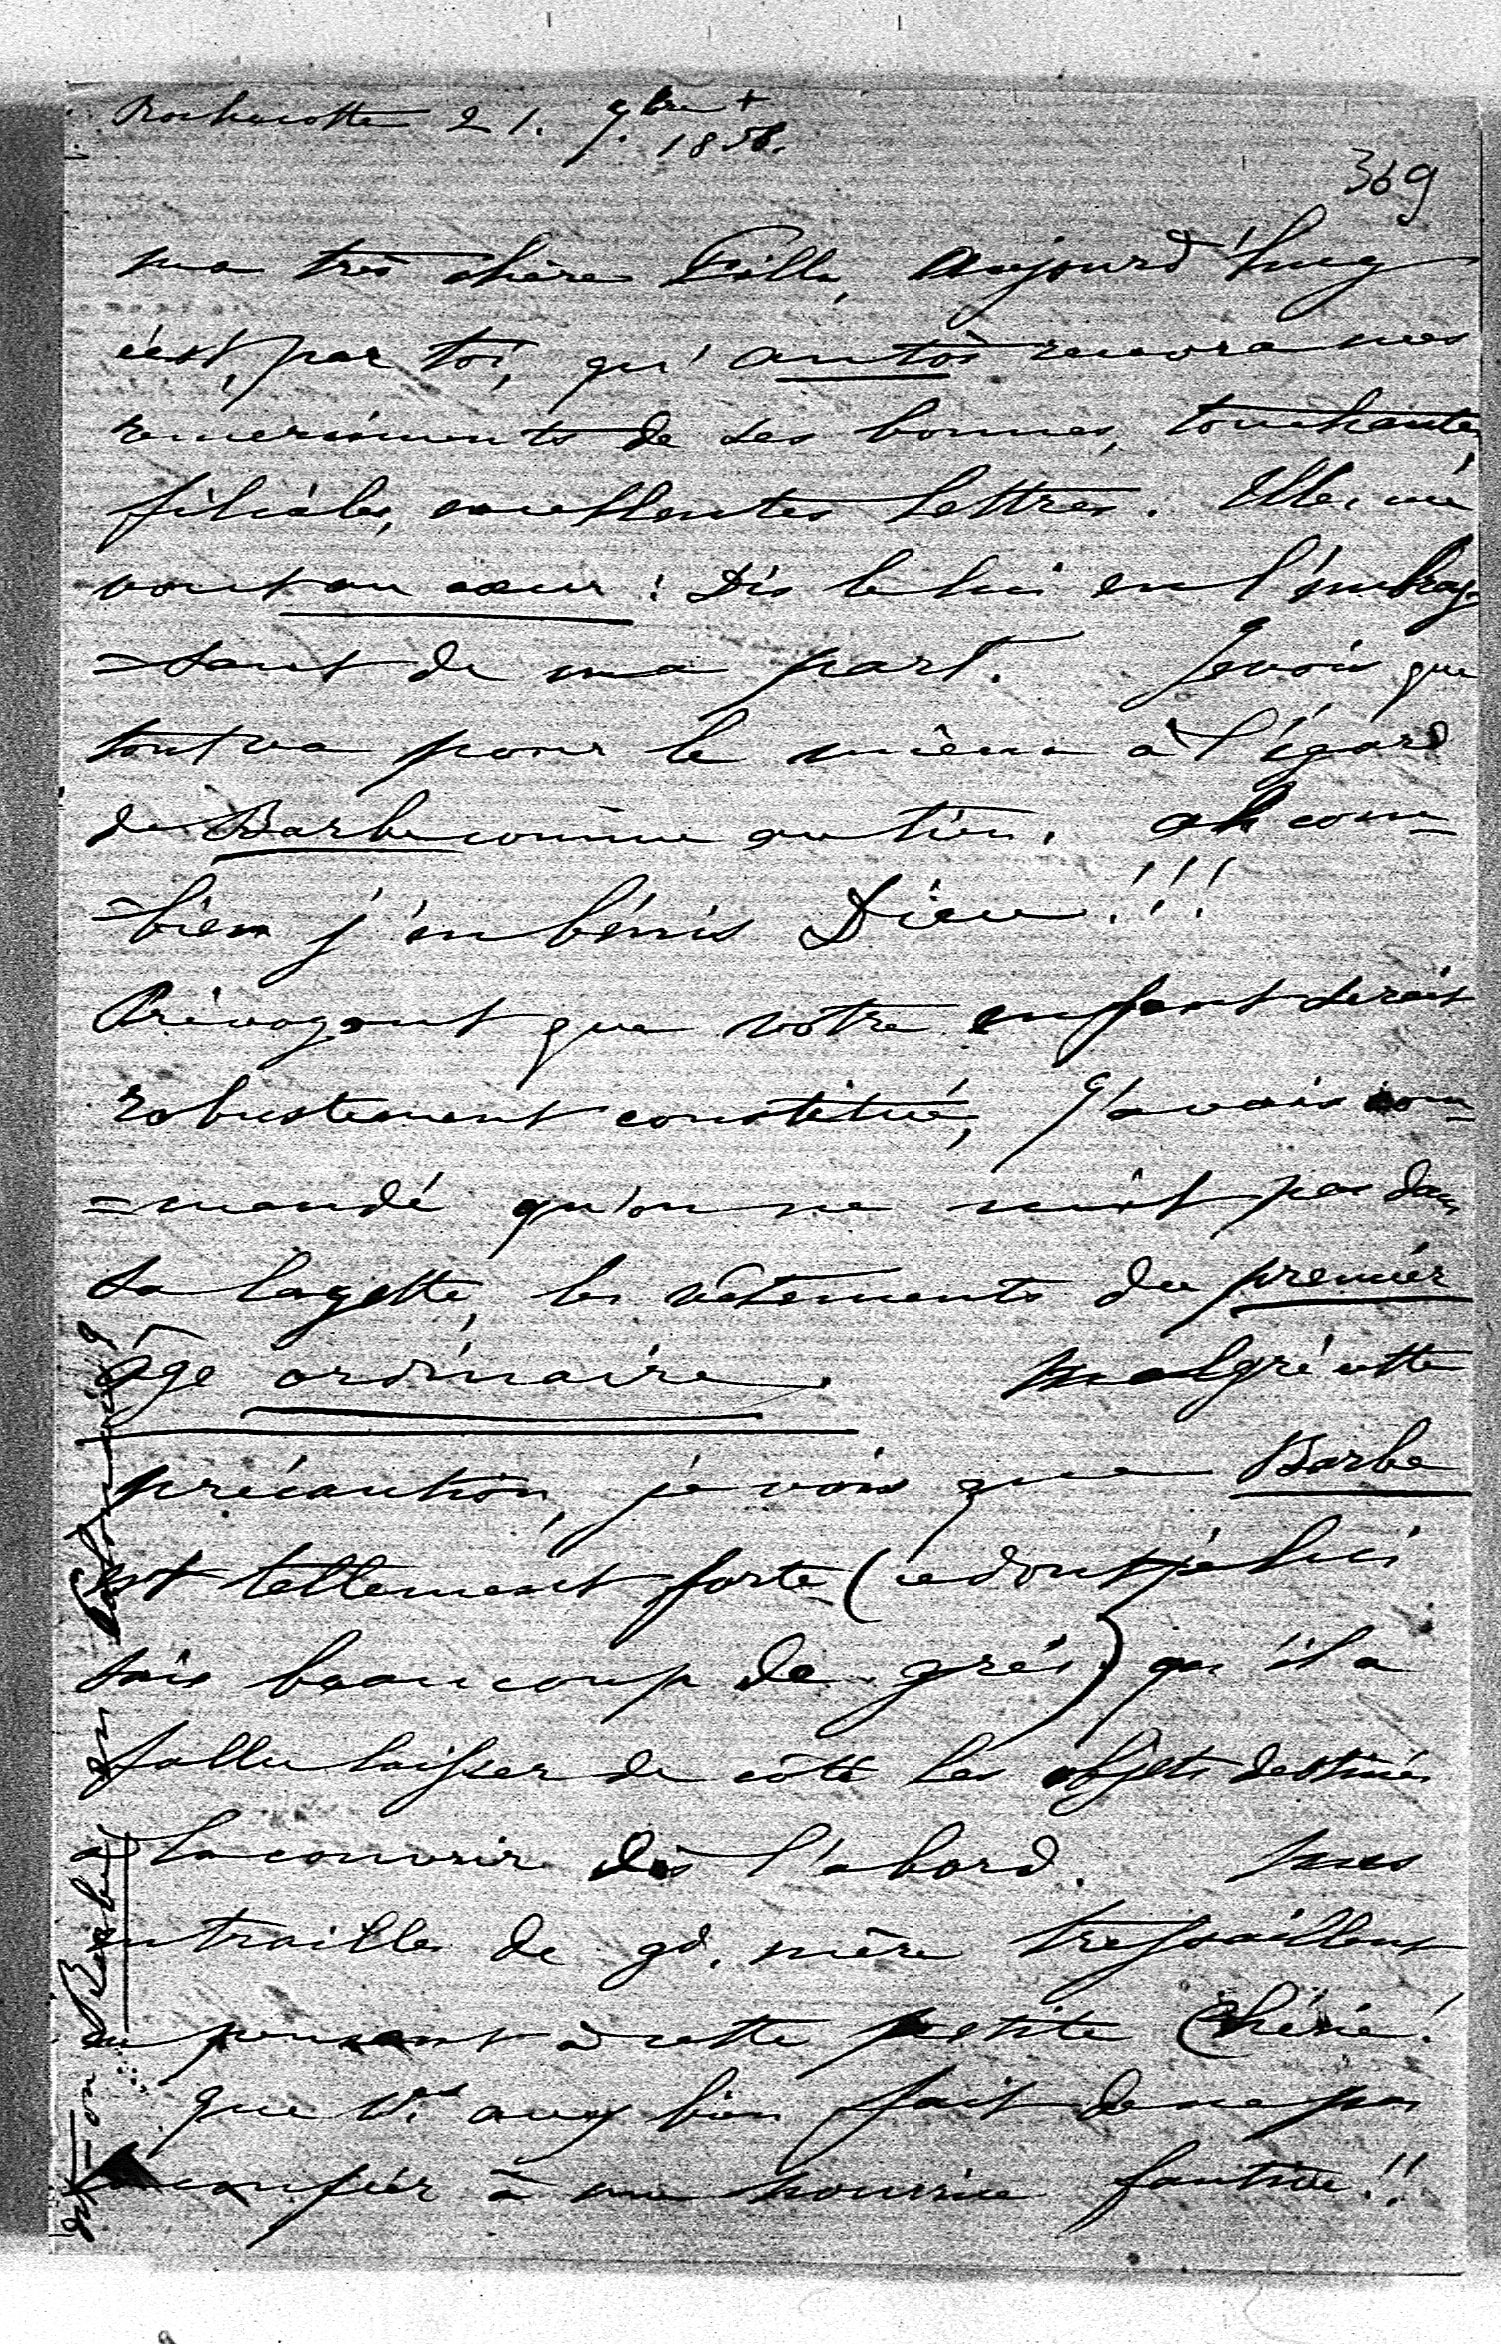 Rochecotte 21. 9bre +
1858.
369
ma très chère Fille, aujourd'huy
c'est, par toi, qu'antos recevra mes
remerciments de ses bonnes, touchantes
filiales, excellentes lettres. Elles me
vont au cœur : Dis le lui en l'embras-
=sant de ma part. Je vois que
tout va pour le mieux à l'égard
de Barbe comme au tien. ah com-
=bien j'en bénis Dieu !!!
Prévoyant que votre enfant serait
robustement constitué, j'avais com-
=mandé qu'on ne mit pas dans
sa layette, les vêtements du premier
âge ordinaire. Malgré cette
précaution, je vois que Barbe
est tellement forte (ce dont je lui
sais beaucoup de grés) qu'il a
fallu laisser de côté les objets destinés
à la couvrir dès l'abord. Mes
entrailles de gd. mère tressaillent
en pensant à cette petite Chérie !
que vs avez bien fait de ne pas
la confier à une nourrice fautive !!
dit-on Barbe en Polonais ?